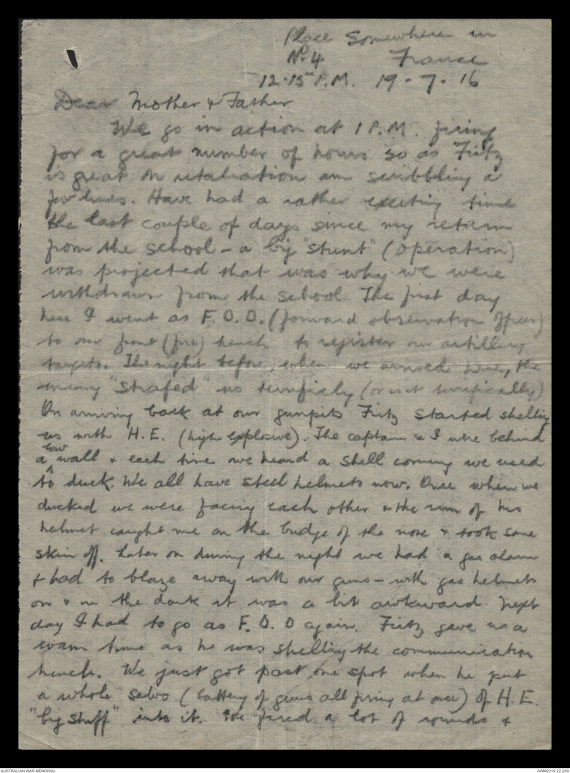 Place Somewhere in
No. 4 France
12.15 P.M. 19-7-16
Dear Mother & Father
We go in action at 1 P.M. firing
for a great number of hours so as Fritz
is great on retaliation am scribbling a
few lines. Have had a rather exciting time
the last couple of days since my return
from the school - a big "stunt" (operation)
was projected that was why we were
withdrawn from the school. The first day
here I went as F.O.O. (forward observation officer)
to our front (fire) trench to register our artillery
targets. The night before, when we arrived here, the
enemy "strafed" us terrificly (or is it terrifically)
On arriving back at our gunpits Fritz started shelling
us with H.E. (high explosive). The captain & I were behind
a low wall & each time we heard a shell coming we used
to duck. We all have steel helmets now. Once when we
ducked we were facing each other & the rim of his
helmet caught me on the bridge of the nose & took some
skin off. Later on during the night we had a gas alarm
& had to blaze away with our guns - with gas helmets
on & in the dark it was a bit awkward. Next
day I had to go as F.O.O again. Fritz gave us a
warm time as he was shelling the communication
trench. We just got past one spot when he put
a whole salvo (battery of guns all firing at once) of H.E.
"big stuff" into it. We fired a lot of rounds &
AUSTRALIAN WAR MEMORIAL